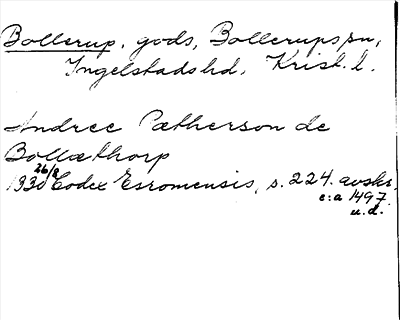 Bollerup, gods, Bollerups sn,
Ingelstads hd, Krist. l.
Andree Pætherson de
Bollæthorp
1330 26/8 Codex Esromensis, s. 224. avskr.
c:a 1497.
u.d.